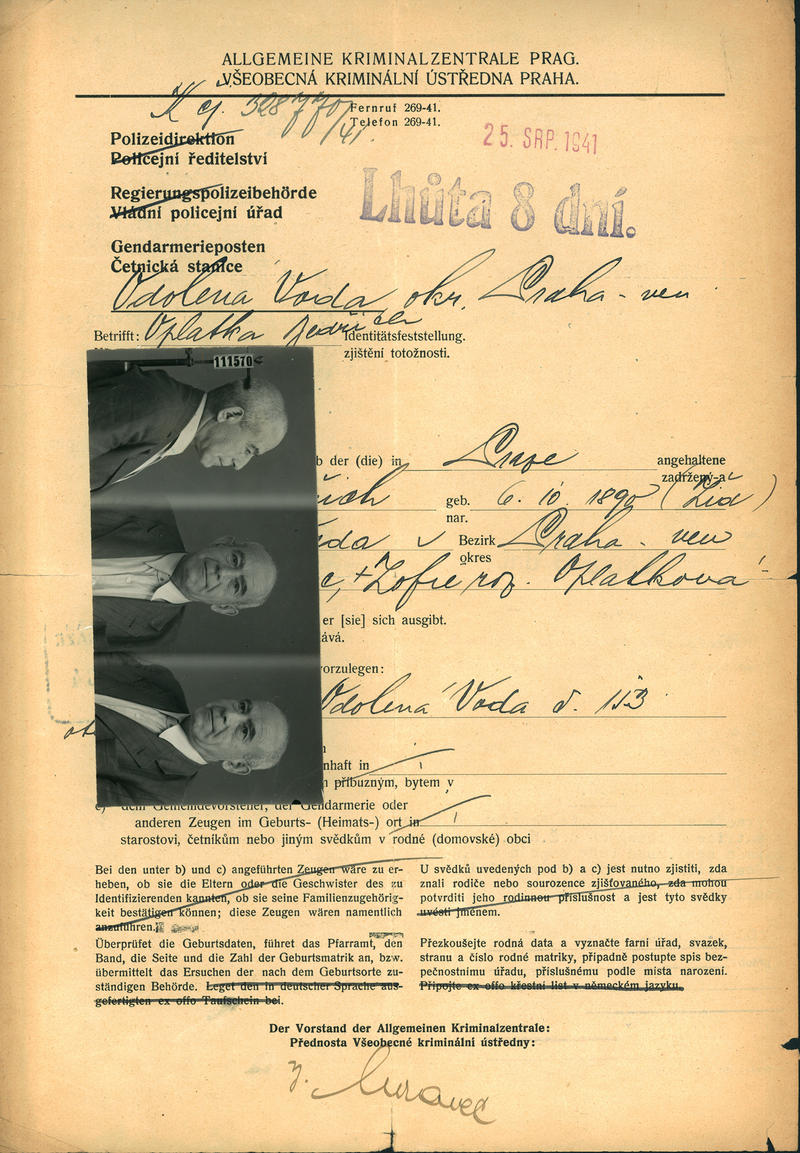 ALLGEMEINE KRIMINALZENTRALE PRAG.
VŠEOBECNÁ KRIMINÁLNÍ ÚSTŘEDNA PRAHA.
K čj. 32877
/41
Fernruf 269-41.
Telefon 269-41.
25. SRP. 1941
Polizeidirektion
Policejní ředitelství
Lhůta 8 dní.
Regierungspolizeibehörde
Vládní policejní úřad
Gendarmerieposten
Četnická stanice
Odolena Voda okr. Praha - ven
Betrifft: Oplatka Jedřich Identitätsfeststellung.
zjištění totožnosti.
111570
b der (die) in Praze angehaltene
zadržený-á
řich geb. 6. 10. 1890 (Žid)
nar.
da v Bezirk Praha - ven
okres
c, + Žofie roz. Oplatková
er [sie] sich ausgibt.
ává.
vorzulegen:
Odolena Voda č. 113
ot
nhaft in
příbuzným, bytem v
c) dem Gemeindevorsteher, der Gendarmerie oder
anderen Zeugen im Geburts- (Heimats-) ort in
starostovi, četníkům nebo jiným svědkům v rodné (domovské) obci
Bei den unter b) und c) angeführten Zeugen wäre zu er-
heben, ob sie die Eltern oder die Geschwister des zu
Identifizierenden kannten, ob sie seine Familienzugehörig-
keit bestätigen können; diese Zeugen wären namentlich
anzuführen.
Überprüfet die Geburtsdaten, führet das Pfarramt, den
Band, die Seite und die Zahl der Geburtsmatrik an, bzw.
übermittelt das Ersuchen der nach dem Geburtsorte zu-
ständigen Behörde. Leget den in deutscher Sprache aus-
gefertigten ex offo Taufschein bei.
U svědků uvedených pod b) a c) jest nutno zjistiti, zda
znali rodiče nebo sourozence zjišťovaného, zda mohou
potvrditi jeho rodinnou příslušnost a jest tyto svědky
uvésti jménem.
Přezkoušejte rodná data a vyznačte farní úřad, svazek,
stranu a číslo rodné matriky, případně postupte spis bez-
pečnostnímu úřadu, příslušnému podle místa narození.
Připojte ex offo křestní list v německém jazyku.
Der Vorstand der Allgemeinen Kriminalzentrale:
Přednosta Všeobecné kriminální ústředny: